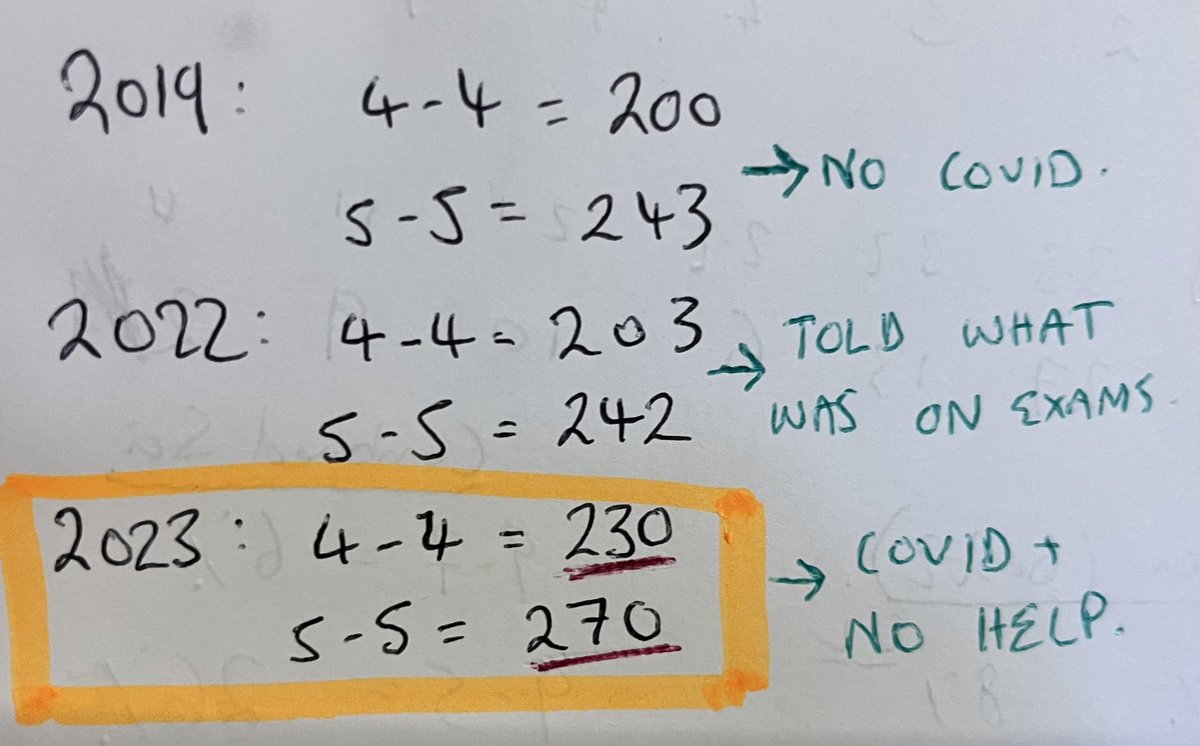 2019: 4-4 = 200
5-5 = 243
→ NO COVID.
2022: 4-4 = 203
5-5 = 242
→ TOLD WHAT
WAS ON EXAMS.
2023: 4-4 = 230
5-5 = 270
→ COVID +
NO HELP.